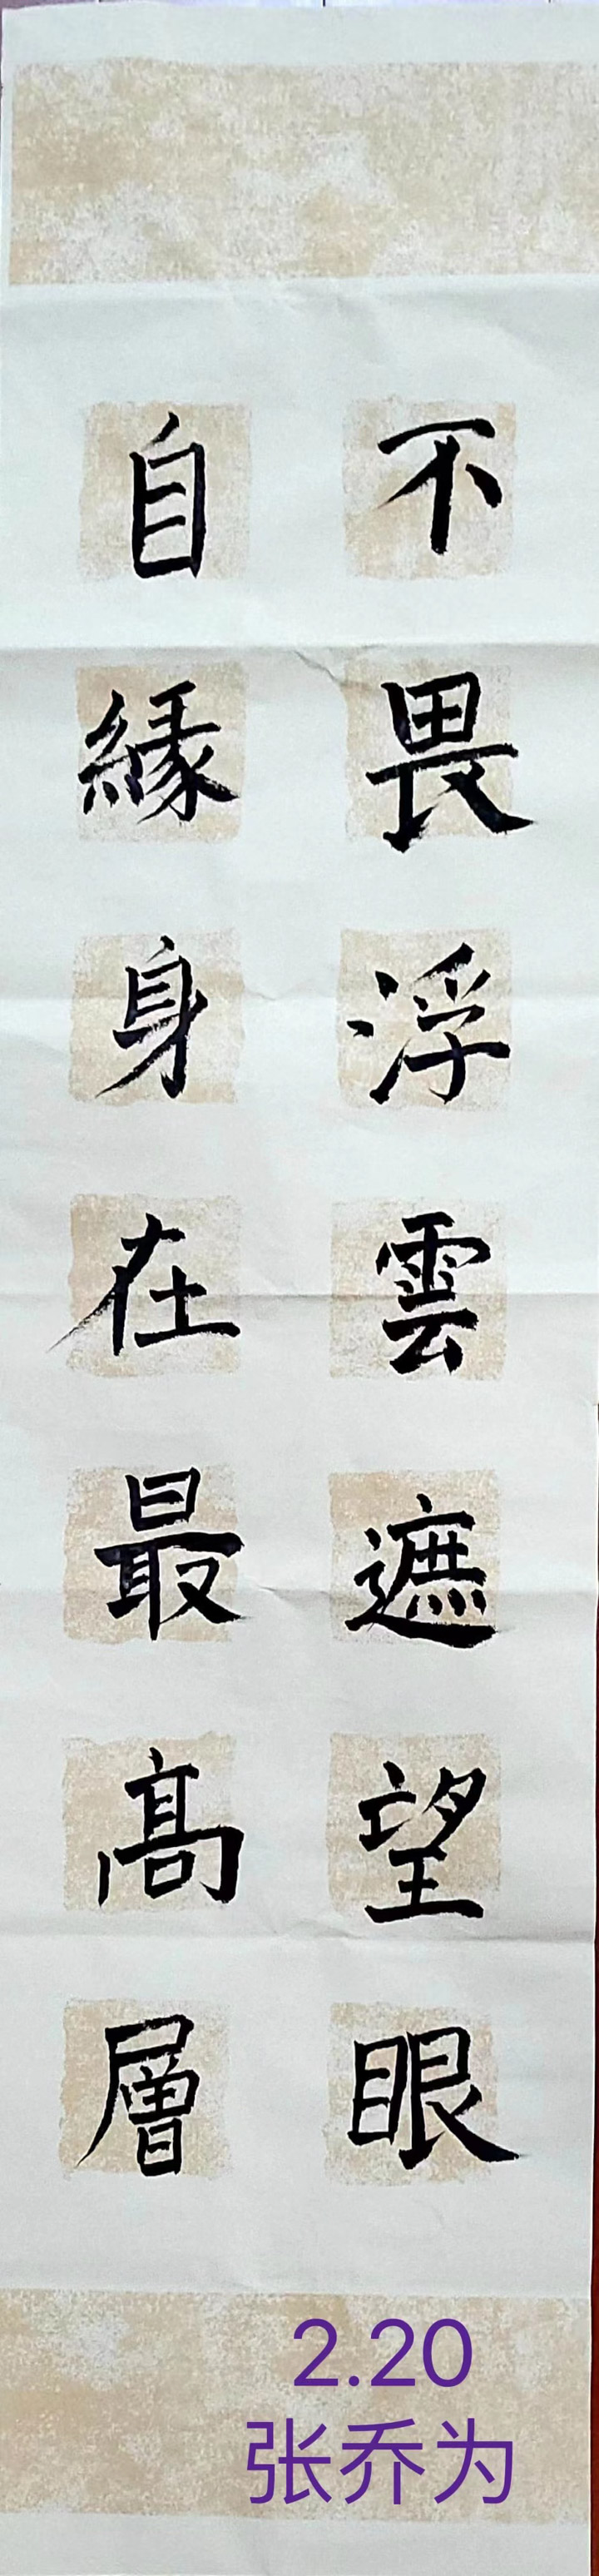 不畏浮雲遮望眼
自緣身在最高層
2.20
张乔为